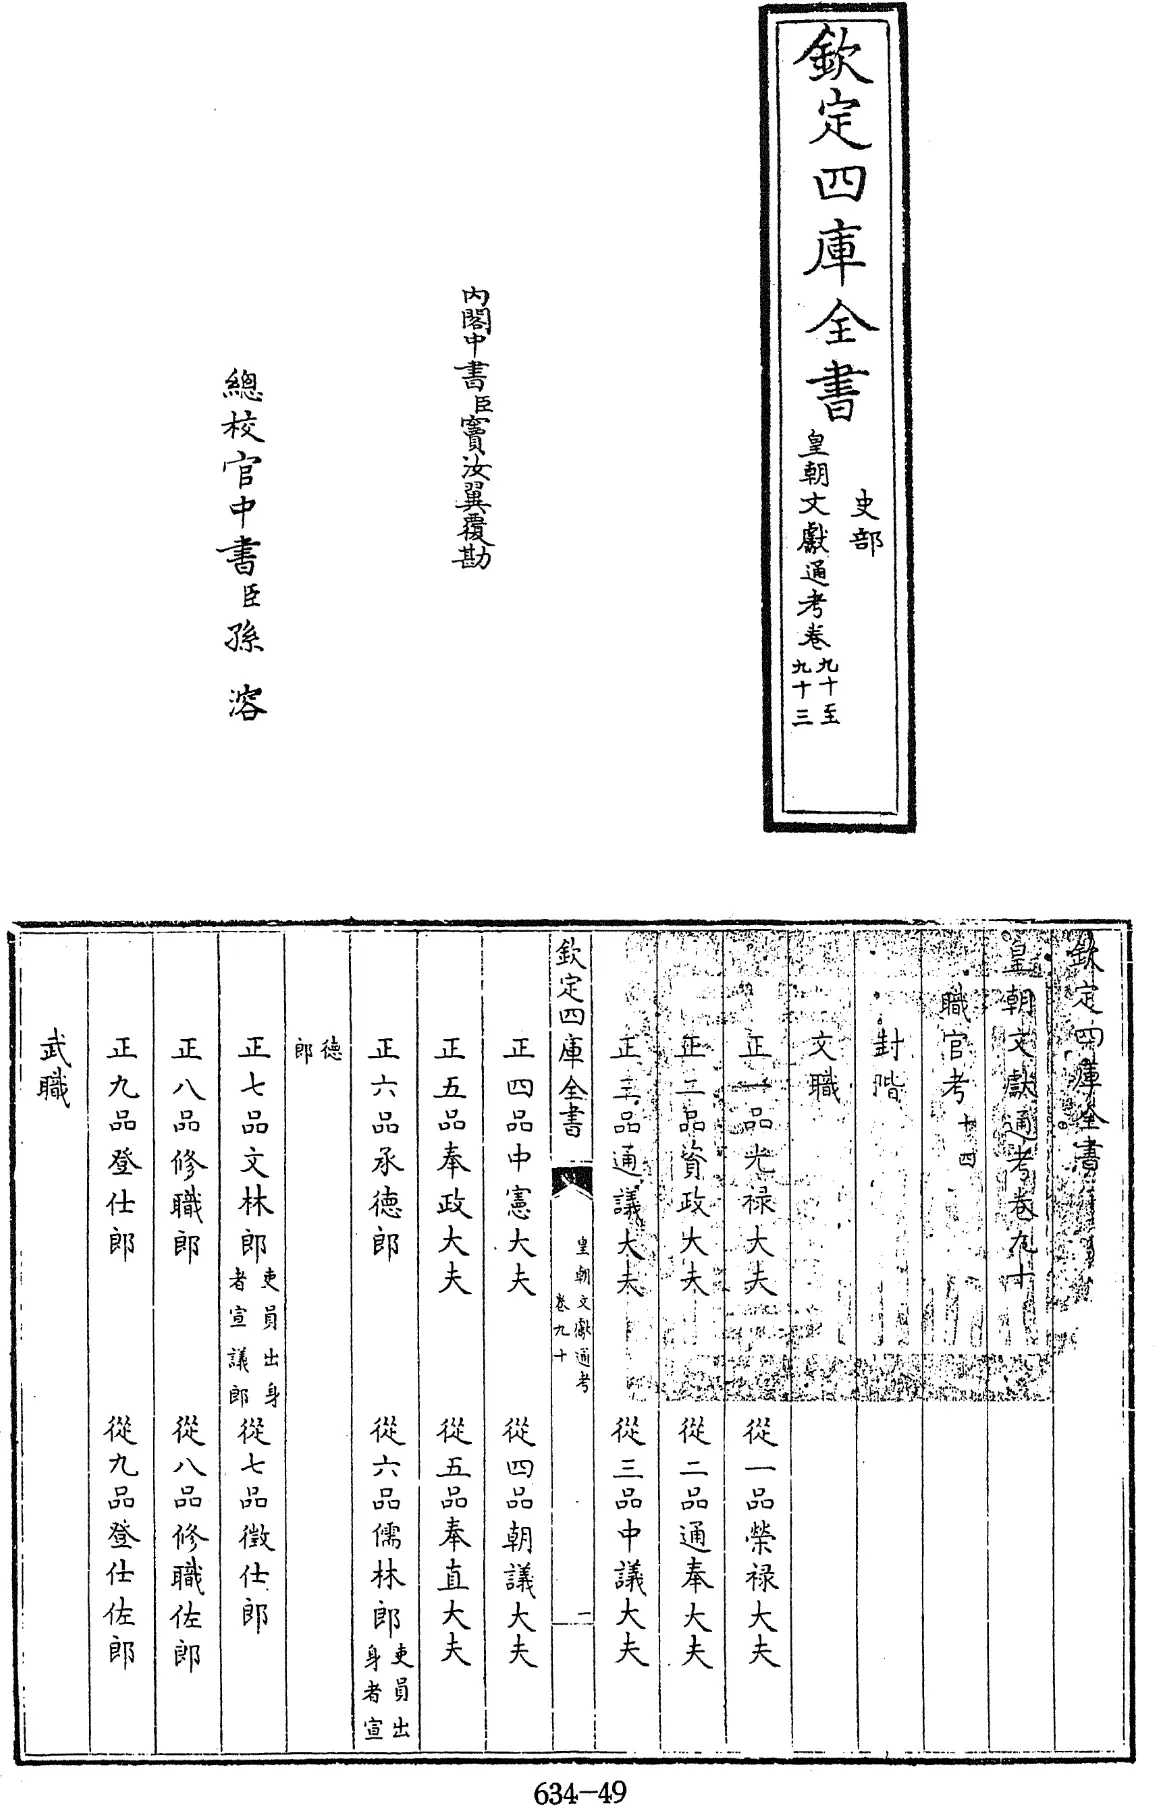 欽定四庫全書
史部
皇朝文獻通考卷九十至九十三
內閣中書臣竇汝翼覆勘
總校官中書臣孫溶
欽定四庫全書
皇朝文獻通考卷九十
職官考十四
封階
文職
正一品光禄大夫 從一品榮禄大夫
正二品資政大夫 從二品通奉大夫
正三品通議大夫 從三品中議大夫
欽定四庫全書 皇朝文獻通考卷九十 一
正四品中憲大夫 從四品朝議大夫
正五品奉政大夫 從五品奉直大夫
正六品承德郎 從六品儒林郎吏員出身者宣
德郎
正七品文林郎吏員出身者宣議郎從七品徵仕郎
正八品修職郎 從八品修職佐郎
正九品登仕郎 從九品登仕佐郎
武職
634-49